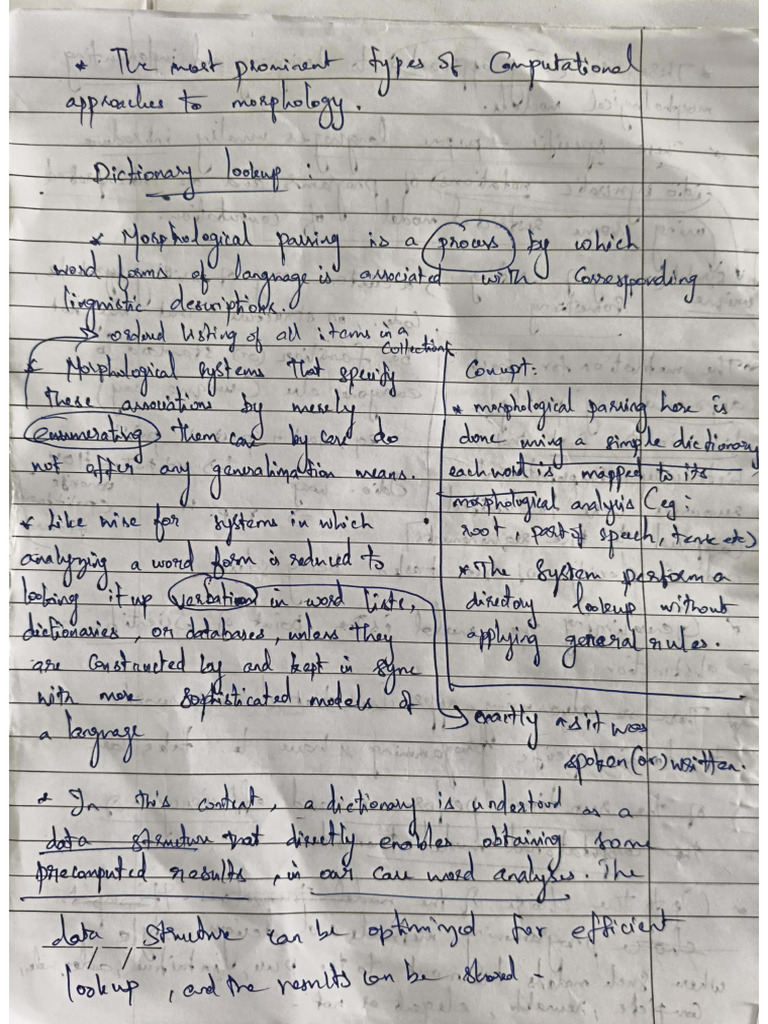 * The most prominent types of Computational
approaches to morphology.
Dictionary lookup :
* Morphological parsing is a process by which
word forms of language is associated with corresponding
linguistic descriptions.
→ ordered listing of all items in a
collection
* Morphological systems that specify
these associations by merely
enumerating them case by case do
not offer any generalization means.
* Like wise for systems in which
analyzing a word form is reduced to
looking it up verbatim in word lists,
dictionaries, or databases, unless they
are constructed by and kept in sync
with more sophisticated models of
a language
Concept:
* morphological parsing here is
done using a simple dictionary
each word is mapped to its
morphological analysis (eg:
root, part of speech, tense etc)
* The system perform a
directory lookup without
applying general rules.
→ exactly as it was
spoken (or) written.
* In this context, a dictionary is understood as a
data structure that directly enables obtaining some
precomputed results, in our case word analyses. The
data structure can be optimized for efficient
lookup, and the results can be shared -